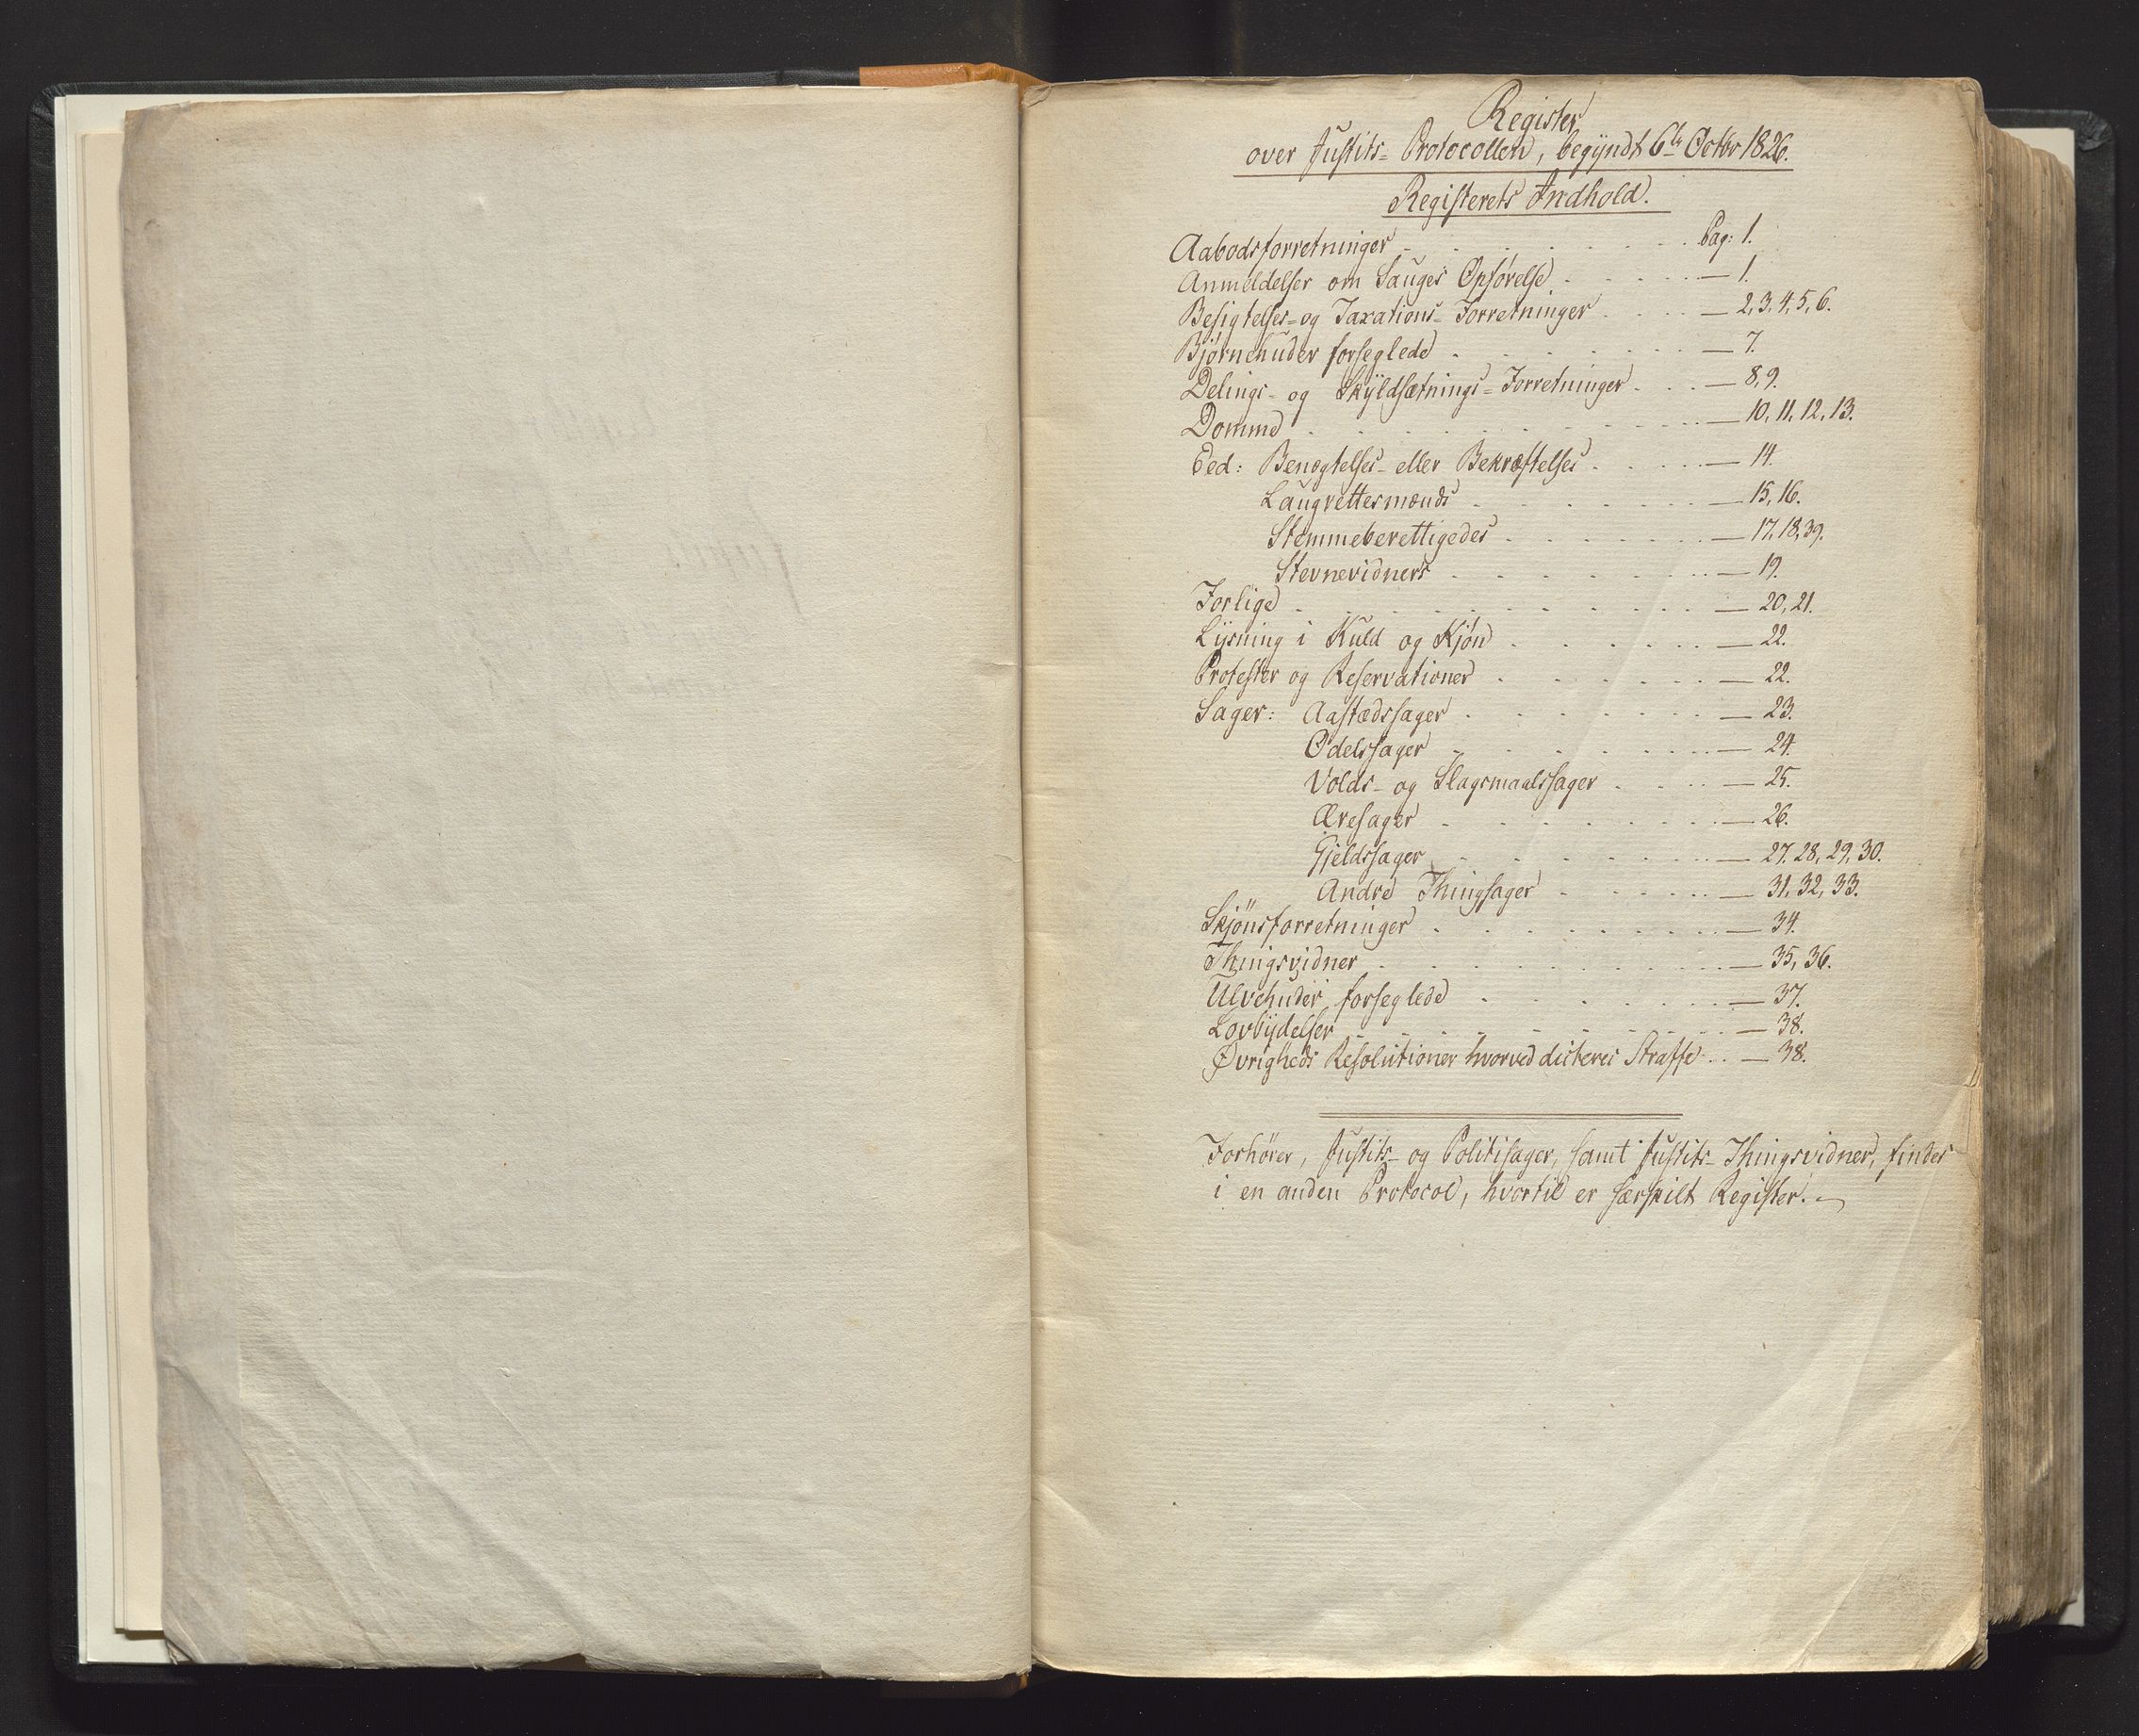 Register
over Justits-Protocollen, begÿndt 6te Octbr 1826.
Registerets Indhold.
Aabodsforretninger . . . . . . . Pag: 1.
Anmeldelser om Sauges Opførelse . . . . — 1.
Besigtelses- og Taxations-Forretninger . . . . — 2, 3, 4, 5, 6.
Bjørnehuder forseglede . . . . . . — 7.
Delings- og Skÿldsætnings-Forretninger . . . — 8, 9.
Domme . . . . . . . . — 10, 11, 12, 13.
Eed: Benægtelses- eller Bekræftelses . . . . — 14.
Laugrettesmænds . . . . . . — 15, 16.
Stemmeberettigedes . . . . . . — 17, 18, 39.
Stevnevidners . . . . . . . — 19.
Forlige . . . . . . . . . — 20, 21.
Lÿsning i Kuld og Kjøn . . . . . . — 22.
Protester og Reservationer . . . . . . — 22.
Sager: Aastædssager . . . . . . — 23.
Odelssager . . . . . . . — 24.
Volds- og Slagsmaalssager . . . . — 25.
Æresager . . . . . . . — 26.
Gjeldssager . . . . . . . — 27, 28, 29, 30.
Andre Thingsager . . . . . — 31, 32, 33.
Skjönsforretninger . . . . . . . — 34.
Thingsvidner . . . . . . . . — 35, 36.
Ulvehuder forseglede . . . . . . — 37.
Lovbÿdelser . . . . . . . . — 38.
Øvrigheds Resolutioner hvorved dicteres Straffe . . — 38.
Forhører, Justits- og Politisager, samt Justits-Thingsvidner, findes
i en anden Protocol, hvortil er særskilt Register.